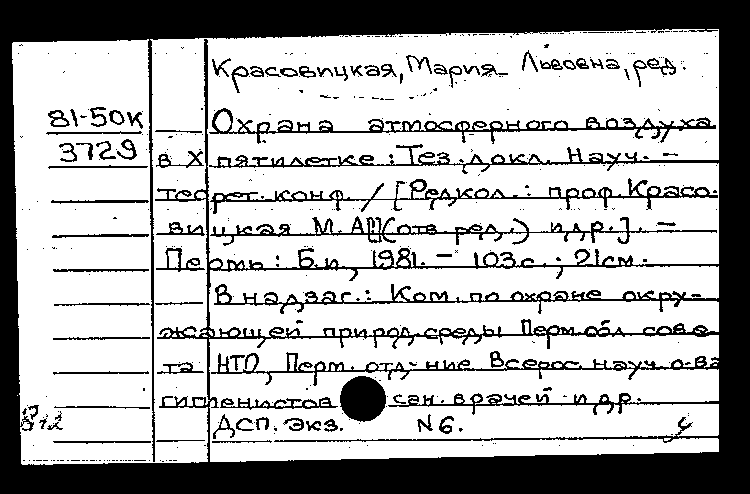 Красовицкая, Мария Львовна, ред.
81-50к
3729
Охрана атмосферного воздуха
в X пятилетке: Тез. докл. Науч. -
теорет. конф. / [Редкол.: проф. Красо-
вицкая М. Л. (отв. ред.) и др.]. -
Пермь: Б.и, 1981. - 103 с.; 21 см.
В надзаг.: Ком. по охране окру-
жающей природ. среды Перм. обл. сове-
та НТО, Перм. отд-ние Всерос. науч. о-ва
гигиенистов сан. врачей и др.
ДСП. Экз. N 6.